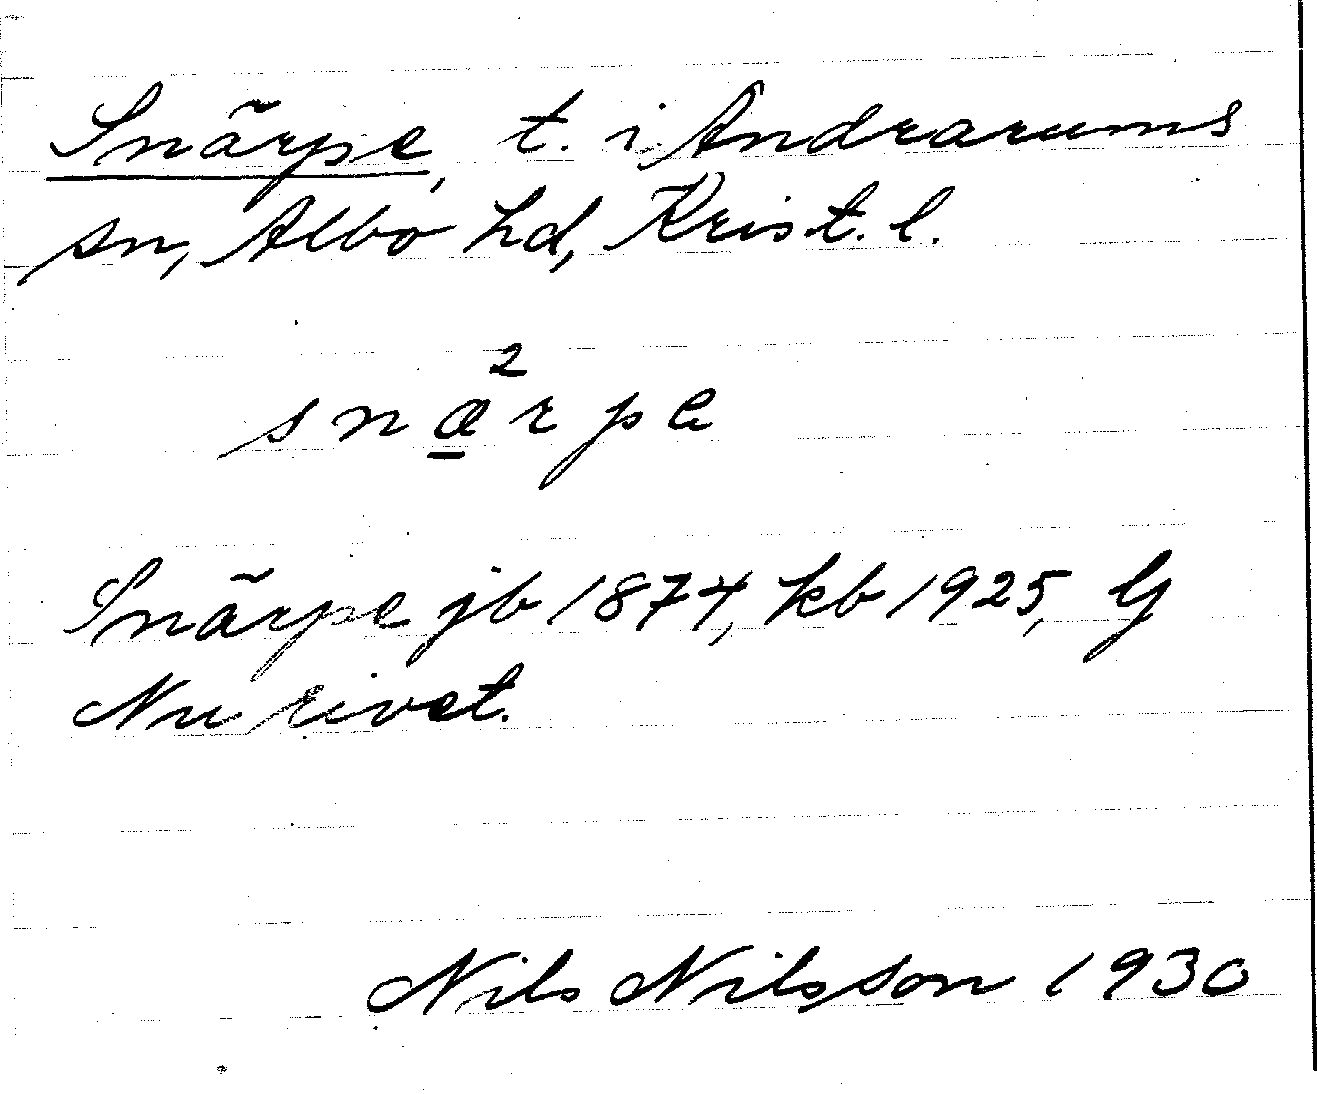 Snärpe, t. i Andrarums
sn, Albo hd, Krist. l.
snæ̲²rpe
Snärpe jb 1874, kb 1925, G
Nu rivet.
Nils Nilsson 1930